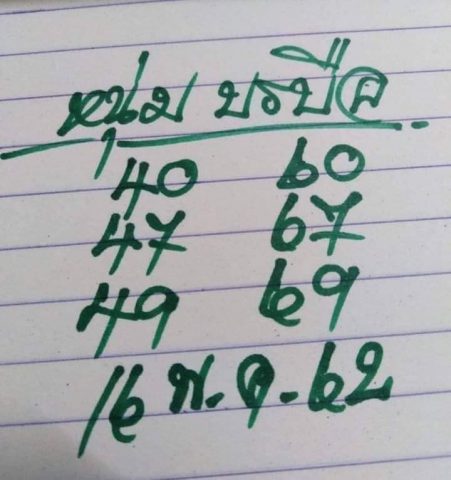 หนุ่ม บรบือ
40 60
47 67
49 69
16 พ.ค. 62